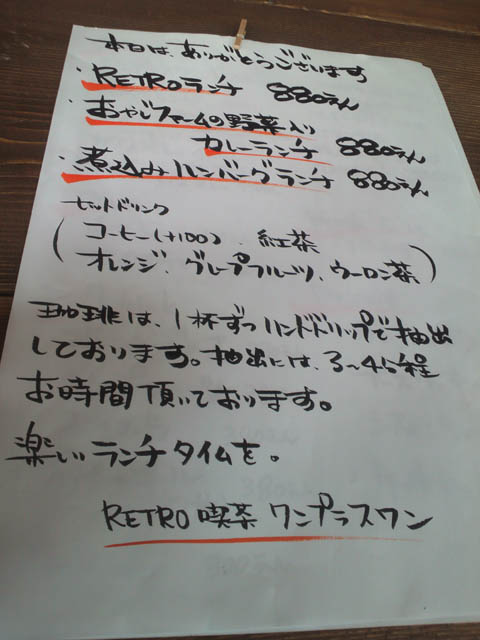 本日は、ありがとうございます
・RETROランチ 880えん
・おやじファームの野菜入り
カレーランチ 880えん
・煮込みハンバーグランチ 880えん
セットドリンク
(コーヒー(+100)、紅茶
オレンジ、グレープフルーツ、ウーロン茶)
珈琲は、1杯ずつハンドドリップで抽出
しております。抽出には、3〜4分程
お時間頂いております。
楽しいランチタイムを。
RETRO喫茶 ワンプラスワン